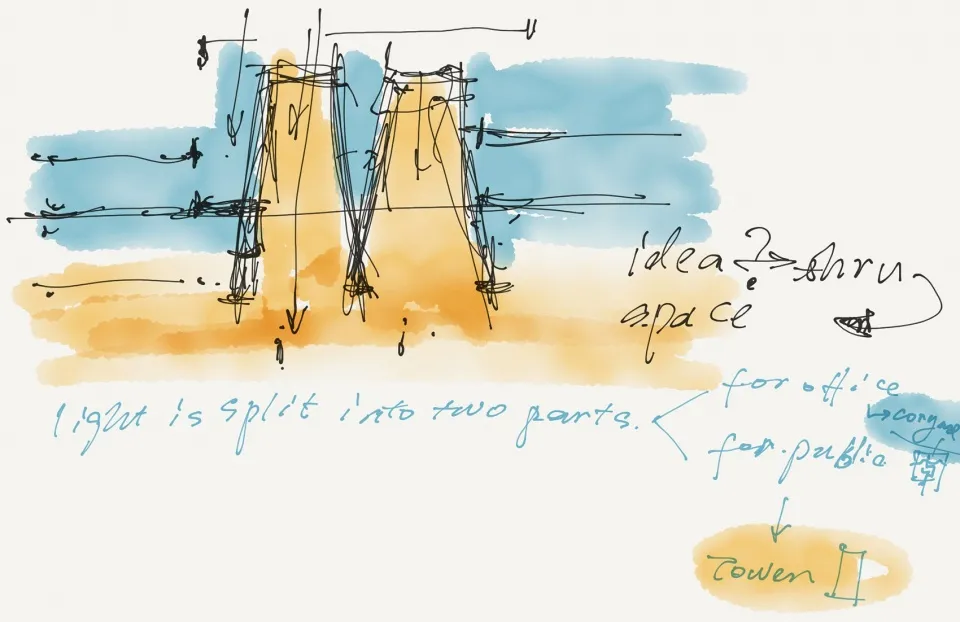 idea ? shru
space
light is split into two parts.
for office
for public
Tower